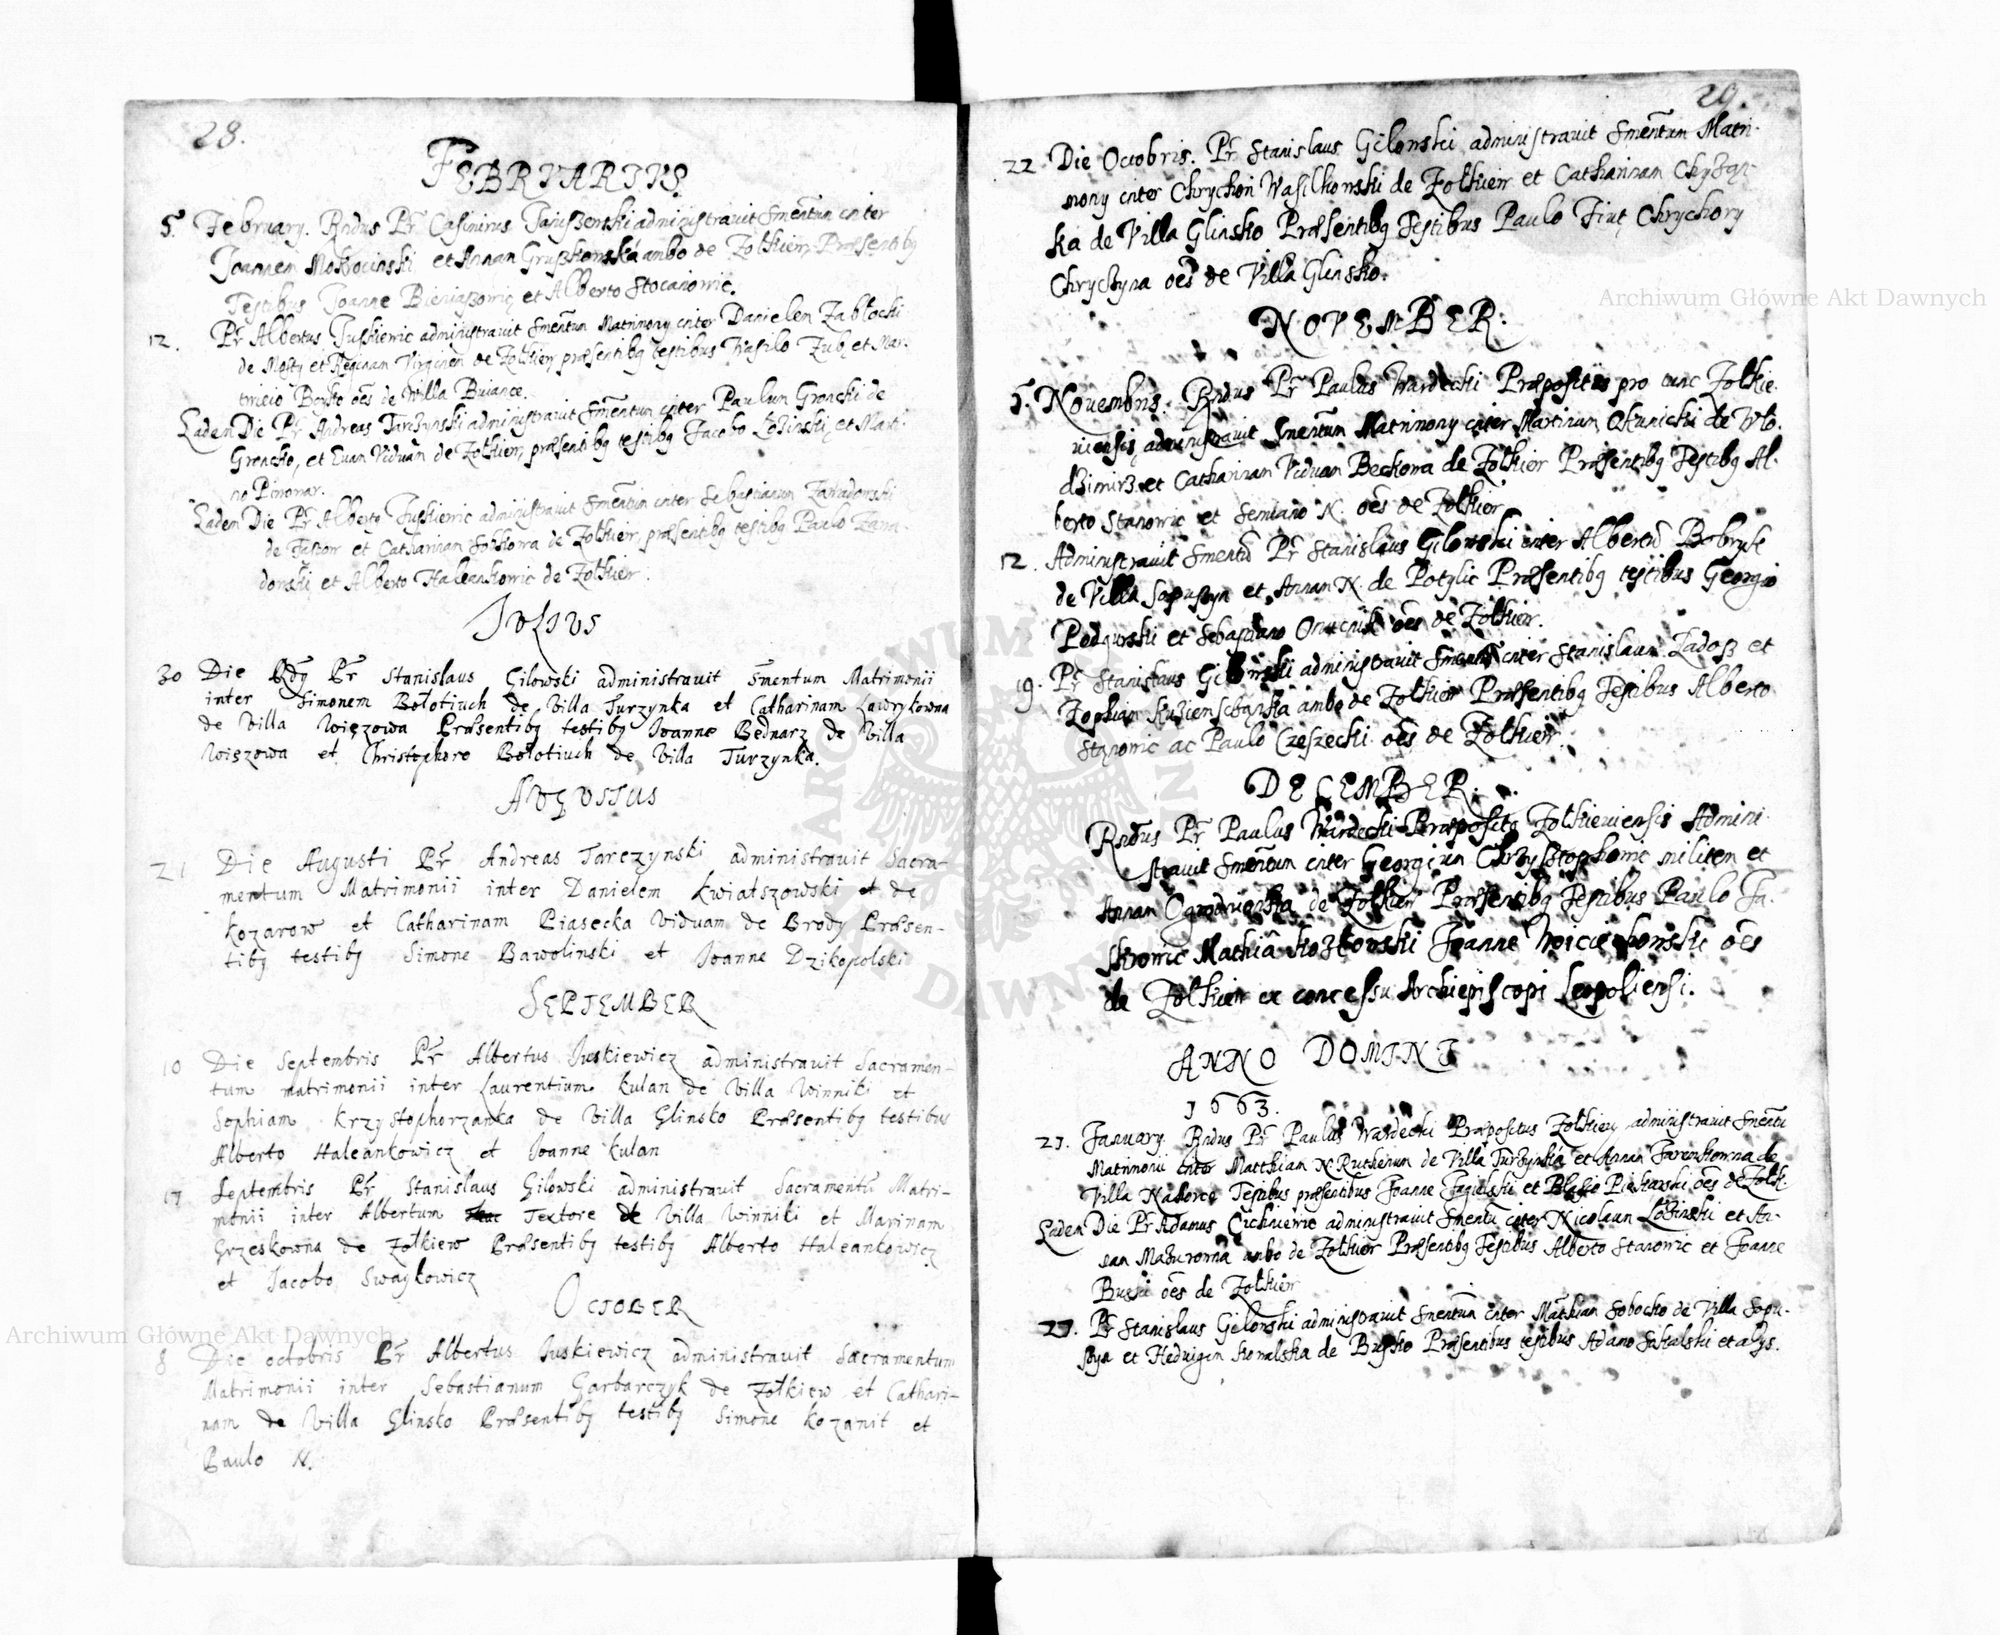 28.
FEBRVARIVS
5. February. Rndus Pr Casimirus administravit Smentum inter
Joannem et Annam ambo de Zolkiew, Præsentibq
Testibus Joanne et Alberto
12. Pr Albertus Juskiewic administravit Smentum Matrimony inter Danielem Zabłocki
de Mosty et Reginam Virginem de Zolkiew præsentibq testibus Wasilo Zub, et Mar-
oēs de Willa
Eadem Die Pr Andreas Tarczynski administravit Smentum inter Paulum Groncki de
Groncko, et Evam Viduam de Zolkiew, præsentibq testibq Jacobo et Mart-
no
Eadem Die Pr Alberto Juskiewic administravit Smentum inter Sebastianum Zawadowski
de et Catharinam de Zolkiew, præsentibq testibq Paulo Zawa-
dowski et Alberto Haleankowic de Zolkiew.
JVLIVS
30 Die Pr Stanislaus Gilowski administravit Smentum Matrimonii
inter Simonem Bołotiuch de Villa Turzynka et Catharinam Lawrykowna
de Villa Więzowa Præsentibq testibq Joanne Bednarz de Villa
Więzowa et Christophoro Bołotiuch de Villa Turzynka.
AVGVSTUS
21 Die Augusti Pr Andreas Tarczynski administravit Sacra-
mentum Matrimonii inter Danielem Kwiatszowski et de
Kozarow et Catharinam Piasecka Viduam de Brody Præsen-
tibq testibq Simone Bawolinski et Joanne Dzikopolski
SEPTEMBER
10 Die Septembris Pr Albertus Juskiewicz administravit Sacramen-
tum matrimonii inter Laurentium Kulan de Villa Winniki et
Sophiam Krzystophorzanka de Villa Glinsko Præsentibq testibus
Alberto Haleankowicz et Joanne Kulan
17 Septembris Pr Stanislaus Gilowski administravit Sacramentū Matri-
monii inter Albertum Textore de Villa Winniki et Marinam
Grzeskowna de Zołkiew Præsentibq testibq Alberto Haleankowicz
et Jacobo Swaykowicz
OCTOBER
8 Die octobris Pr Albertus Juskiewicz administravit Sacramentum
Matrimonii inter Sebastianum Garbarczyk de Zołkiew et Cathari-
nam de Villa Glinsko Præsentibq testibq Simone Kozanit et
Paulo N.
29.
22 Die Octobris. Pr Stanislaus Gilowski administravit Smentum Matri-
mony inter Chrychori Wasilkowski de Zolkiew et Catharinam
ka de Villa Glinsko Præsentibq Testibus Paulo Chrychory
Chryczyna oēs de Villa Glinsko.
NOVEMBER.
5. Novembris. Rndus Pr Paulus Wardecki Præpositus pro tunc Zolkie-
viensis administravit Smentum Matrimony inter Martinum Okunicki de Wło-
dzimirz et Catharinam Viduam Beckowa de Zolkiew Præsentibq Testibq Al-
berto Stanowic et Semiano N. oēs de Zolkiew
12. Administravit Smentū Pr Stanislaus Gilowski inter Albertū
de Villa Sopuszyn et Annam N. de Potylic Præsentibq testibus Georgio
Podgurski et Sebastiano oēs de Zolkiew.
19. Pr Stanislaus Gilowski administravit Smentū inter Stanislaum et
Zophiam ambo de Zolkiew Præsentibq Testibus Alberto
Stanowic ac Paulo Czeszecki oēs de Zolkiew.
DECEMBER.
Rndus Pr Paulus Wardecki Præpositq Zolkieviensis Admini-
stravit Smentum inter Georgium Chrzysztophowic militem et
Annam de Zolkiew Præsentibq Testibus Paulo Fa-
Mathia Joanne oēs
de Zolkiew ex concessu Archiepiscopi Leopoliensi.
ANNO DOMINI
1663.
21. January Rndus Pr Paulus Wardecki Præpositus Zolkiewy administravit Smentū
Matrimonii inter Matthiam N. Ruthenum de Villa Turzynka et Annam de
Villa Testibus præsentibus Joanne Jagielski et Blasio Piekarski oēs de Zolk:
Eadem Die Pr Adamus administravit Smentū inter Nicolaum et An-
nam Mazurowna ambo de Zolkiew Præsentibq Testibus Alberto Stanowic et Joanne
oēs de Zolkiew
Pr Stanislaus Gilowski administravit Smentum inter Mathiam Sobocko de Villa Sopu-
szyn et Hedvigem Kowalska de Busko Præsentibus testibus Adamo et alys.
Archiwum Główne Akt Dawnych
Archiwum Główne Akt Dawnych
ARCHIWUM GŁÓWNE AKT DAWNYCH